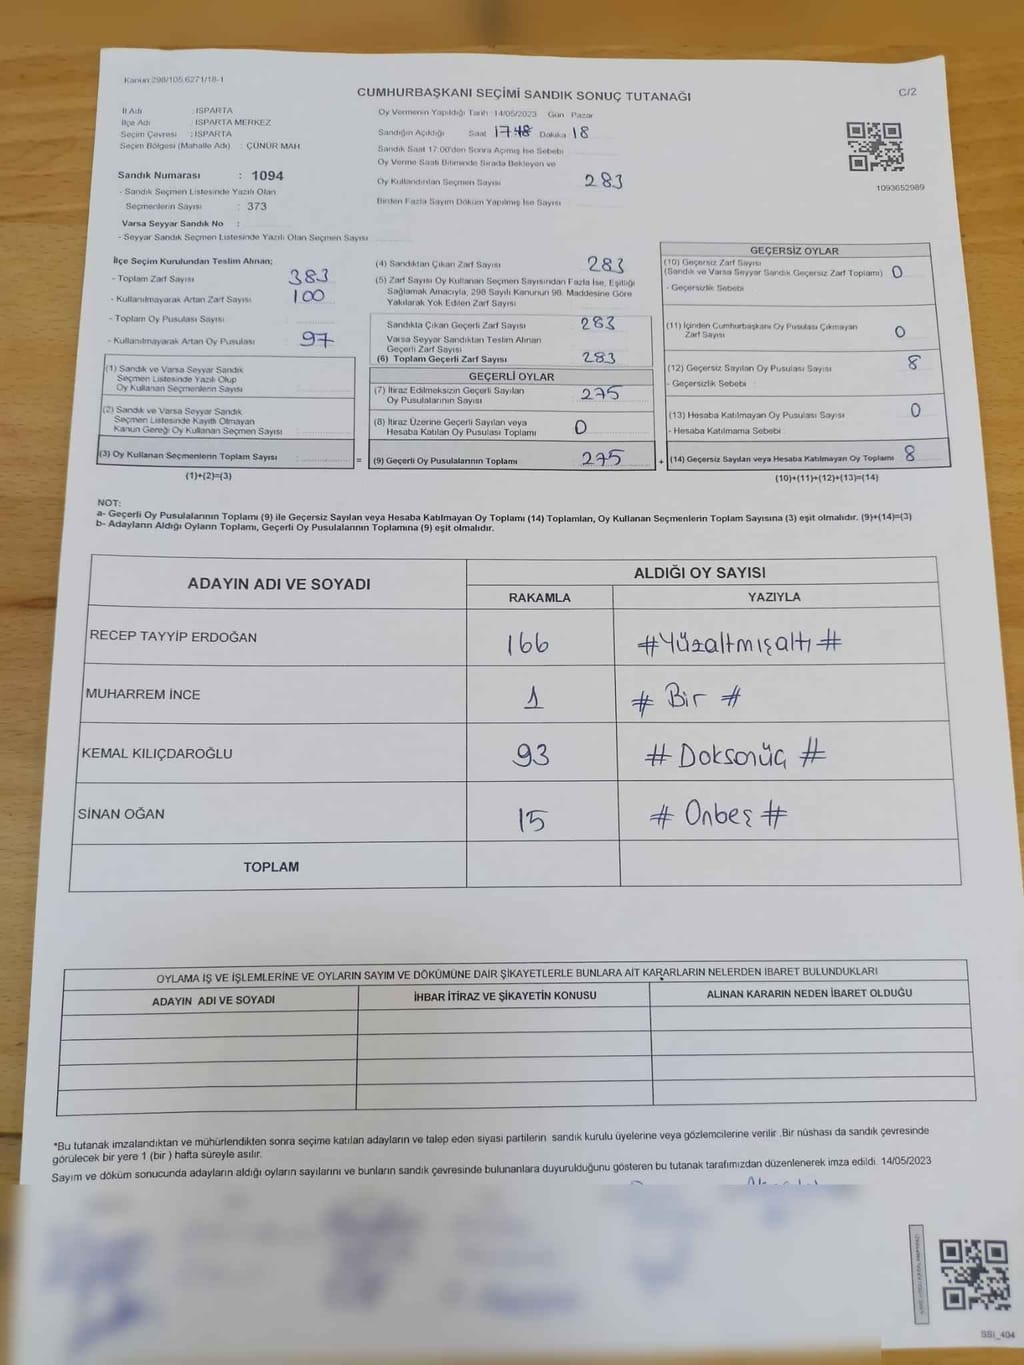 Kanun:298/105,6271/18-1
CUMHURBAŞKANI SEÇİMİ SANDIK SONUÇ TUTANAĞI
C/2
İl Adı : ISPARTA
İlçe Adı : ISPARTA MERKEZ
Seçim Çevresi : ISPARTA
Seçim Bölgesi (Mahalle Adı) : ÇÜNÜR MAH
Sandık Numarası : 1094
- Sandık Seçmen Listesinde Yazılı Olan
Seçmenlerin Sayısı : 373
Varsa Seyyar Sandık No :
- Seyyar Sandık Seçmen Listesinde Yazılı Olan Seçmen Sayısı
Oy Vermenin Yapıldığı Tarih :14/05/2023 Gün Pazar
Sandığın Açıldığı Saat 17:48 Dakika 18
Sandık Saat 17:00'den Sonra Açılmış İse Sebebi
Oy Verme Saati Bitiminde Sırada Bekleyen ve
Oy Kullandırılan Seçmen Sayısı 283
Birden Fazla Sayım Döküm Yapılmış İse Sayısı
1093652989
İlçe Seçim Kurulundan Teslim Alınan;
- Toplam Zarf Sayısı 383
- Kullanılmayarak Artan Zarf Sayısı 100
- Toplam Oy Pusulası Sayısı
- Kullanılmayarak Artan Oy Pusulası 97
(1) Sandık ve Varsa Seyyar Sandık
Seçmen Listesinde Yazılı Olup
Oy Kullanan Seçmenlerin Sayısı
(2) Sandık ve Varsa Seyyar Sandık
Seçmen Listesinde Kayıtlı Olmayan
Kanun Gereği Oy Kullanan Seçmen Sayısı
(3) Oy Kullanan Seçmenlerin Toplam Sayısı
(1)+(2)=(3)
(4) Sandıktan Çıkan Zarf Sayısı 283
(5) Zarf Sayısı Oy Kullanan Seçmen Sayısından Fazla İse, Eşitliği
Sağlamak Amacıyla, 298 Sayılı Kanunun 98. Maddesine Göre
Yakılarak Yok Edilen Zarf Sayısı
Sandıkta Çıkan Geçerli Zarf Sayısı 283
Varsa Seyyar Sandıktan Teslim Alınan
Geçerli Zarf Sayısı
(6) Toplam Geçerli Zarf Sayısı 283
GEÇERLİ OYLAR
(7) İtiraz Edilmeksizin Geçerli Sayılan
Oy Pusulalarının Sayısı 275
(8) İtiraz Üzerine Geçerli Sayılan veya
Hesaba Katılan Oy Pusulası Toplamı 0
= (9) Geçerli Oy Pusulalarının Toplamı 275
GEÇERSİZ OYLAR
(10) Geçersiz Zarf Sayısı
(Sandık ve Varsa Seyyar Sandık Geçersiz Zarf Toplamı) 0
- Geçersizlik Sebebi
(11) İçinden Cumhurbaşkanı Oy Pusulası Çıkmayan
Zarf Sayısı 0
(12) Geçersiz Sayılan Oy Pusulası Sayısı 8
- Geçersizlik Sebebi
(13) Hesaba Katılmayan Oy Pusulası Sayısı 0
- Hesaba Katılmama Sebebi
+ (14) Geçersiz Sayılan veya Hesaba Katılmayan Oy Toplamı 8
(10)+(11)+(12)+(13)=(14)
NOT:
a- Geçerli Oy Pusulalarının Toplamı (9) ile Geçersiz Sayılan veya Hesaba Katılmayan Oy Toplamı (14) Toplamları, Oy Kullanan Seçmenlerin Toplam Sayısına (3) eşit olmalıdır. (9)+(14)=(3)
b- Adayların Aldığı Oyların Toplamı, Geçerli Oy Pusulalarının Toplamına (9) eşit olmalıdır.
ADAYIN ADI VE SOYADI ALDIĞI OY SAYISI
RAKAMLA YAZIYLA
RECEP TAYYİP ERDOĞAN 166 #Yüzaltmışaltı#
MUHARREM İNCE 1 # Bir #
KEMAL KILIÇDAROĞLU 93 # Doksanüç #
SİNAN OĞAN 15 # Onbeş #
TOPLAM
OYLAMA İŞ VE İŞLEMLERİNE VE OYLARIN SAYIM VE DÖKÜMÜNE DAİR ŞİKAYETLERLE BUNLARA AİT KARARLARIN NELERDEN İBARET BULUNDUKLARI
ADAYIN ADI VE SOYADI İHBAR İTİRAZ VE ŞİKAYETİN KONUSU ALINAN KARARIN NEDEN İBARET OLDUĞU
*Bu tutanak imzalandıktan ve mühürlendikten sonra seçime katılan adayların ve talep eden siyasi partilerin sandık kurulu üyelerine veya gözlemcilerine verilir .Bir nüshası da sandık çevresinde
görülecek bir yere 1 (bir ) hafta süreyle asılır.
Sayım ve döküm sonucunda adayların aldığı oyların sayılarını ve bunların sandık çevresinde bulunanlara duyurulduğunu gösteren bu tutanak tarafımızdan düzenlenerek imza edildi. 14/05/2023
SSI_404